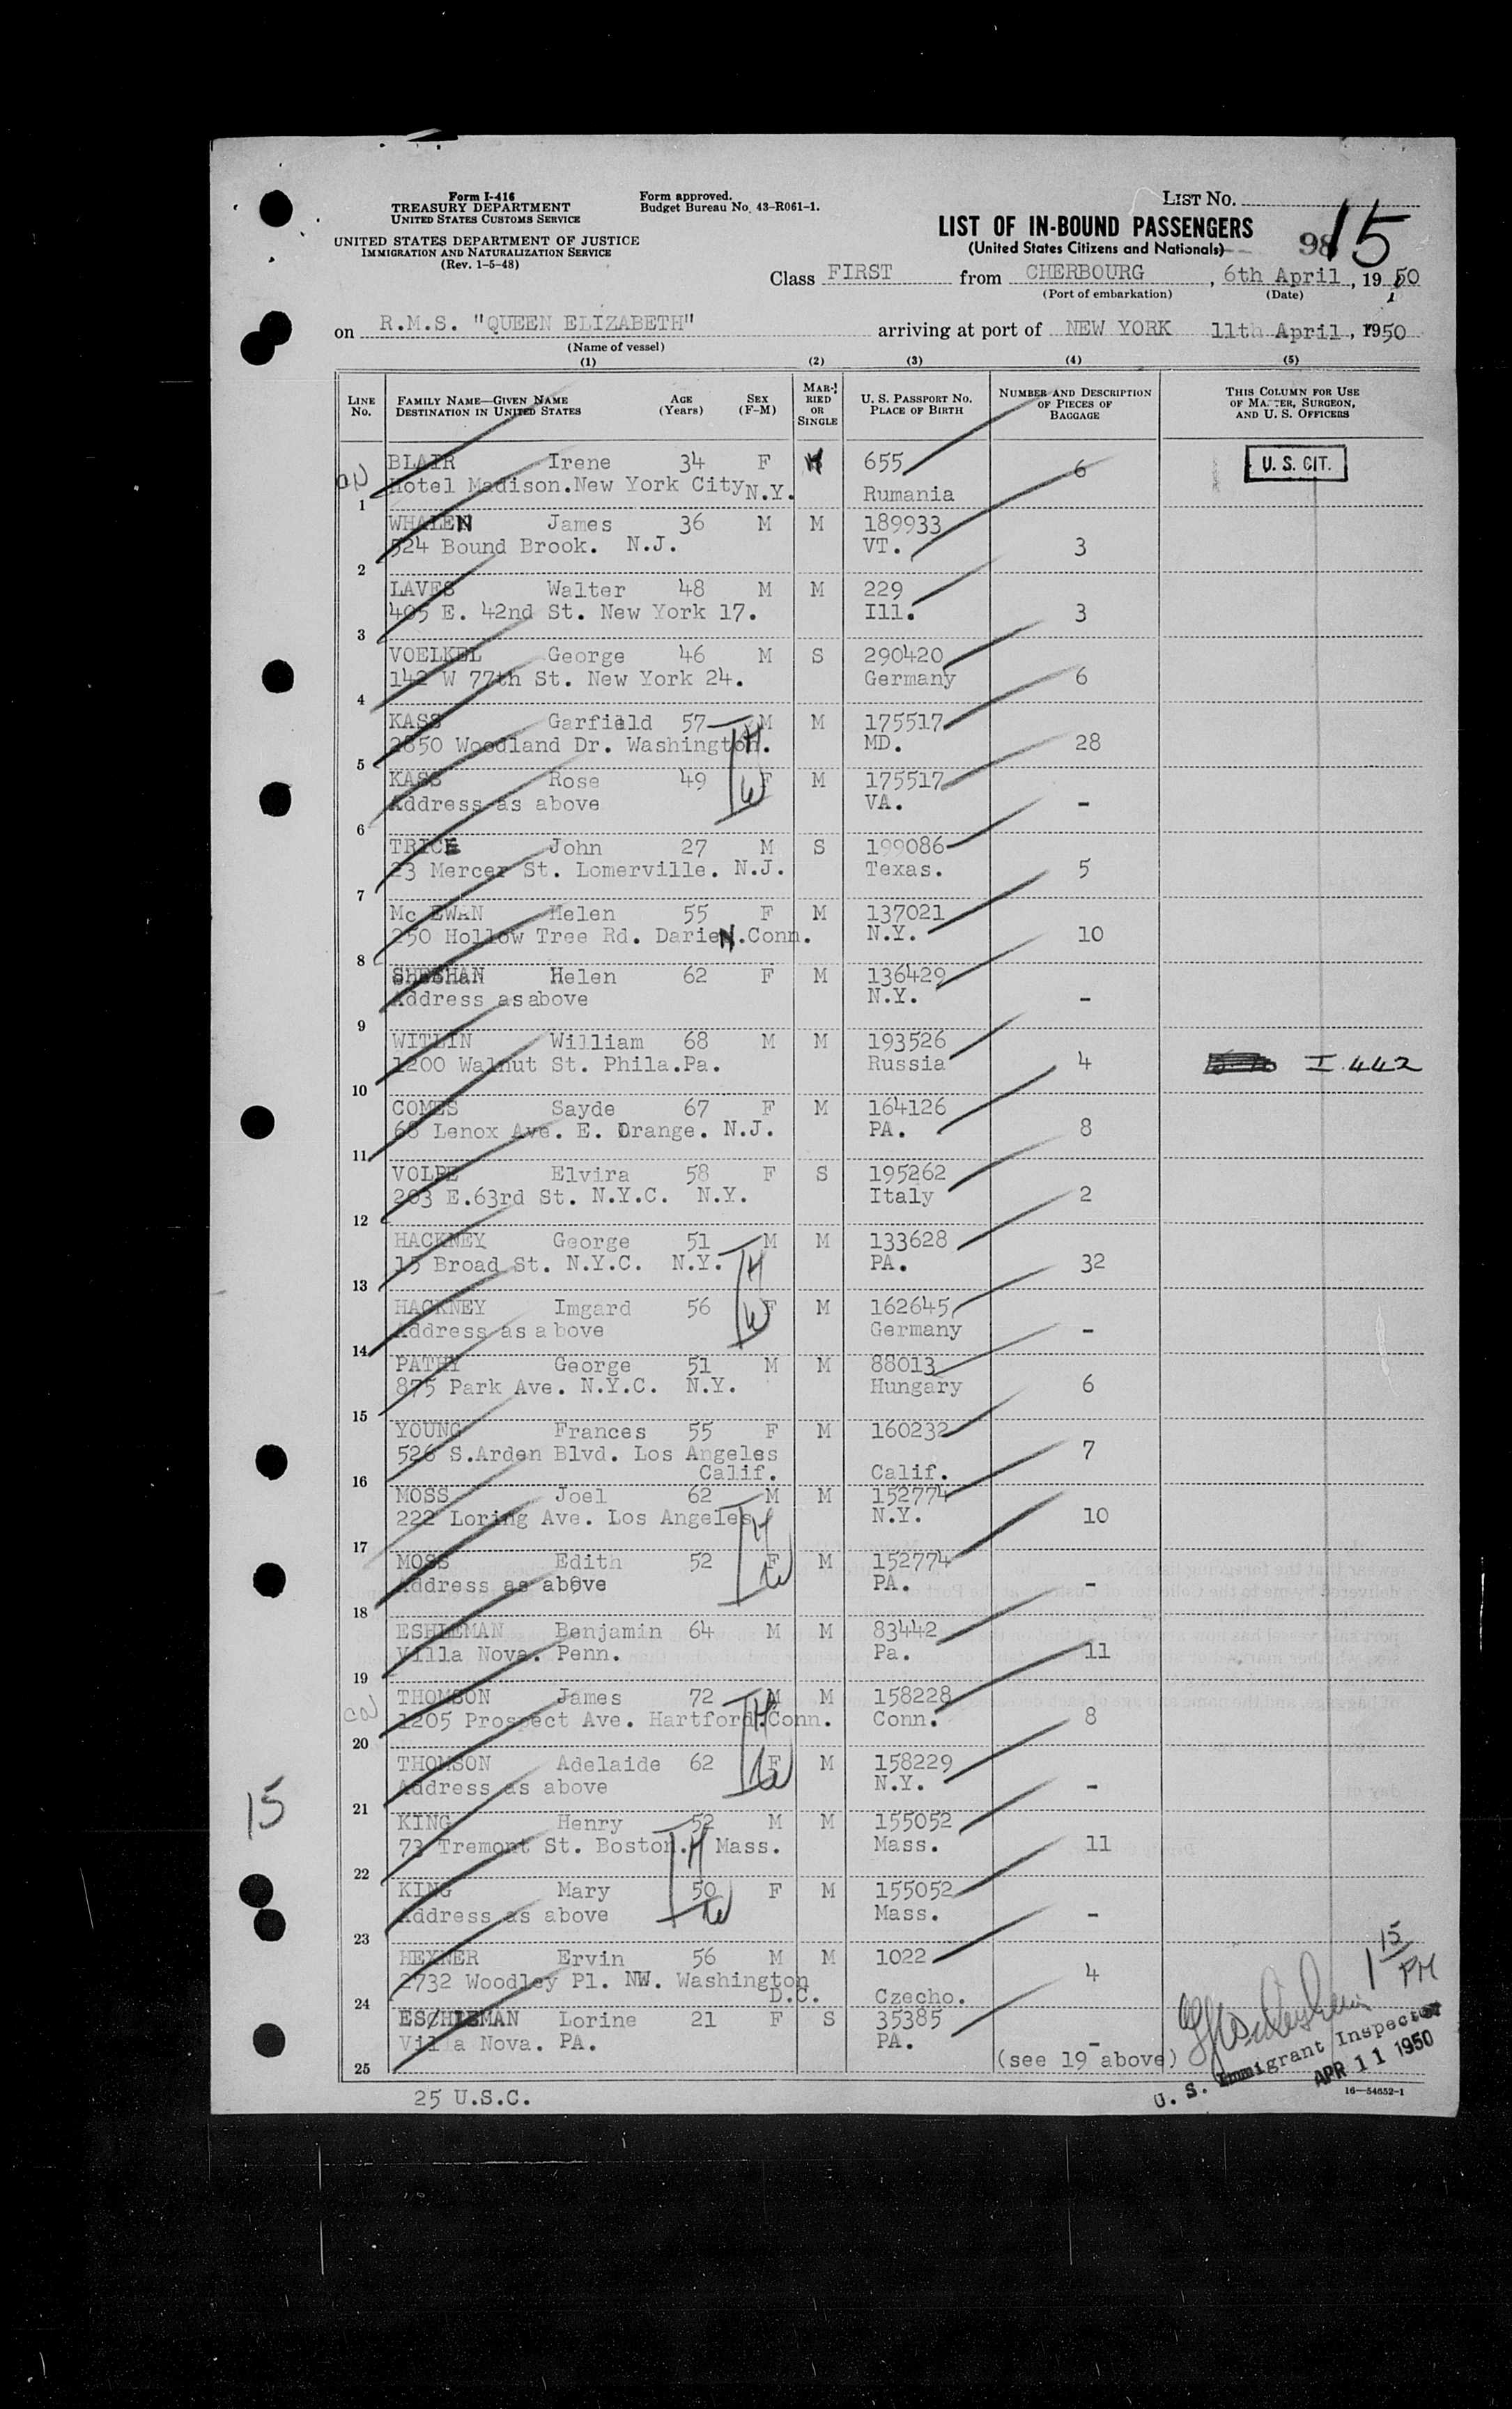 Form I-416
TREASURY DEPARTMENT
UNITED STATES CUSTOMS SERVICE
UNITED STATES DEPARTMENT OF JUSTICE
IMMIGRATION AND NATURALIZATION SERVICE
(Rev. 1-5-48)
Form approved.
Budget Bureau No. 43-R061-1.
LIST NO.
LIST OF IN-BOUND PASSENGERS
(United States Citizens and Nationals)
98 15
Class FIRST from CHERBOURG, 6th April, 1950
(Port of embarkation) (Date)
on R.M.S. "QUEEN ELIZABETH" arriving at port of NEW YORK 11th April, 1950
(Name of vessel)
(1) (2) (3) (4) (5)
LINE NO. FAMILY NAME—GIVEN NAME DESTINATION IN UNITED STATES AGE (Years) SEX (F-M) MARRIED OR SINGLE U. S. PASSPORT NO. PLACE OF BIRTH NUMBER AND DESCRIPTION OF PIECES OF BAGGAGE THIS COLUMN FOR USE OF MASTER, SURGEON, AND U. S. OFFICERS
BLAIR Irene 34 F 655 6 U. S. CIT.
1 Hotel Madison.New York City N.Y. Rumania
WHALEN James 36 M M 189933
2 524 Bound Brook. N.J. VT. 3
LAVES Walter 48 M M 229
3 405 E. 42nd St. New York 17. Ill. 3
VOELKEL George 46 M S 290420
4 142 W 77th St. New York 24. Germany 6
KASS Garfield 57 M M 175517 H
5 2850 Woodland Dr. Washington. MD. 28
KASS Rose 49 F M 175517 W
6 Address as above VA. -
TRICE John 27 M S 199086
7 23 Mercer St. Lomerville. N.J. Texas. 5
Mc EWAN Helen 55 F M 137021
8 250 Hollow Tree Rd. Darien.Conn. N.Y. 10
SHEEHAN Helen 62 F M 136429
9 Address as above N.Y. -
WITLIN William 68 M M 193526
10 1200 Walnut St. Phila.Pa. Russia 4 I.442
COMBS Sayde 67 F M 164126
11 68 Lenox Ave. E. Orange. N.J. PA. 8
VOLPE Elvira 58 F S 195262
12 203 E.63rd St. N.Y.C. N.Y. Italy 2
HACKNEY George 51 M M 133628 H
13 15 Broad St. N.Y.C. N.Y. PA. 32
HACKNEY Imgard 56 F M 162645 W
14 Address as above Germany -
PATHY George 51 M M 88013
15 875 Park Ave. N.Y.C. N.Y. Hungary 6
YOUNG Frances 55 F M 160232
526 S.Arden Blvd. Los Angeles 7
16 Calif. Calif.
MOSS Joel 62 M M 152774 H
17 222 Loring Ave. Los Angeles N.Y. 10
MOSS Edith 52 F M 152774 W
18 Address as above PA. -
ESHLEMAN Benjamin 64 M M 83442
19 Villa Nova. Penn. Pa. 11
THOMSON James 72 M M 158228 H
20 1205 Prospect Ave. Hartford.Conn. Conn. 8
THOMSON Adelaide 62 F M 158229 W
21 Address as above N.Y. -
KING Henry 52 M M 155052 H
22 73 Tremont St. Boston. Mass. Mass. 11
KING Mary 50 F M 155052 W
23 Address as above Mass. -
HEXNER Ervin 56 M M 1022
2732 Woodley Pl. NW. Washington 4
24 D.C. Czecho.
ESCHLEMAN Lorine 21 F S 35385
Villa Nova. PA. PA. -
25 (see 19 above)
15
1 15 PM
U. S. Immigrant Inspector
APR 11 1950
25 U.S.C.
16—54652-1